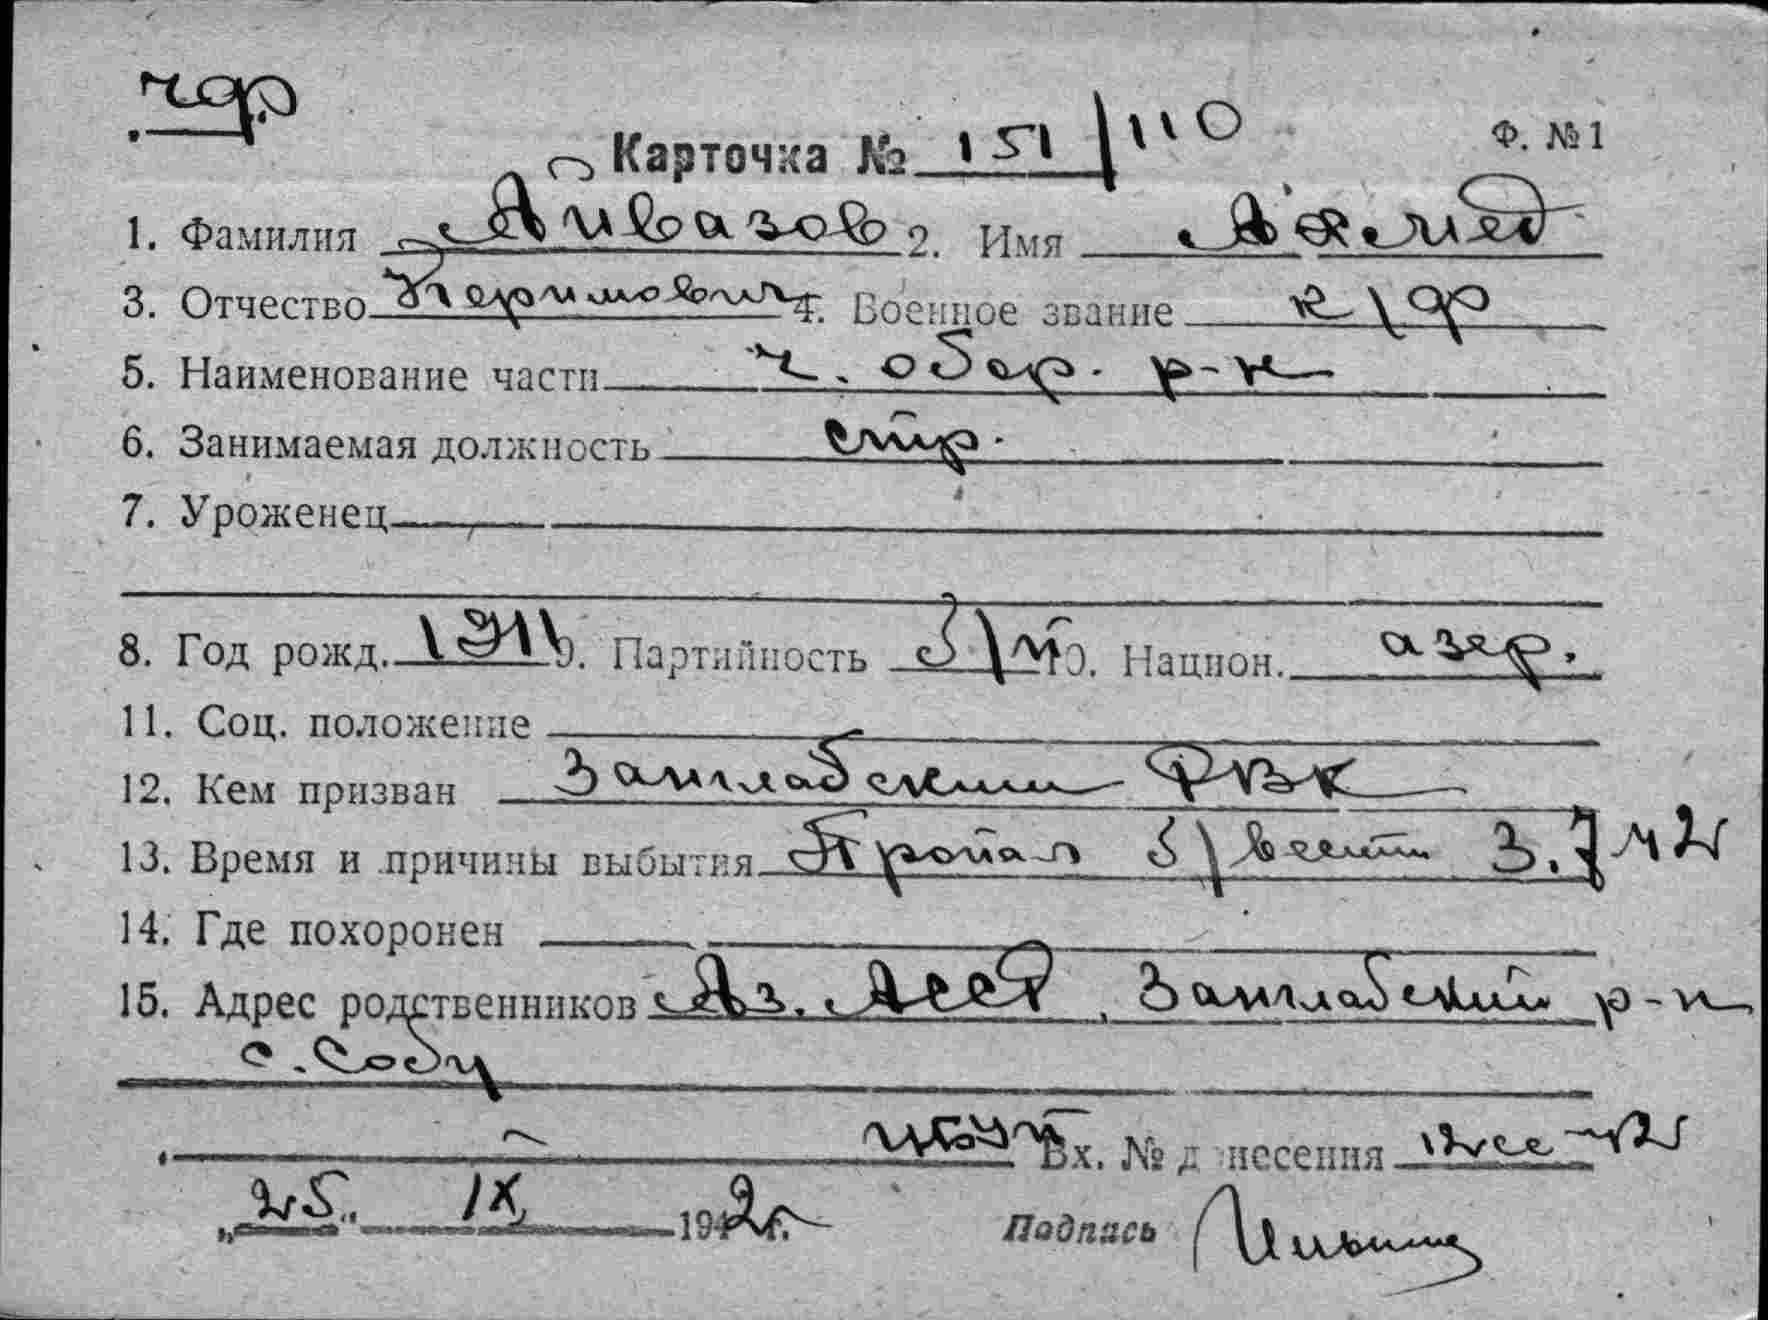 чдр
Карточка № 151/110 Ф. № 1
1. Фамилия Айвазов 2. Имя Ахмед
3. Отчество Керимович 4. Военное звание к/др
5. Наименование части ч. обор. р-н
6. Занимаемая должность стр.
7. Уроженец
8. Год рожд. 1911 9. Партийность б/п 10. Национ. азер.
11. Соц. положение
12. Кем призван Зангладский РВК
13. Время и причины выбытия Пропал б/вест 3.7 42
14. Где похоронен
15. Адрес родственников Аз. АССР, Зангладский р-н
с. Собу
Вх. № донесения 12
„25" IX 1942г. Подпись